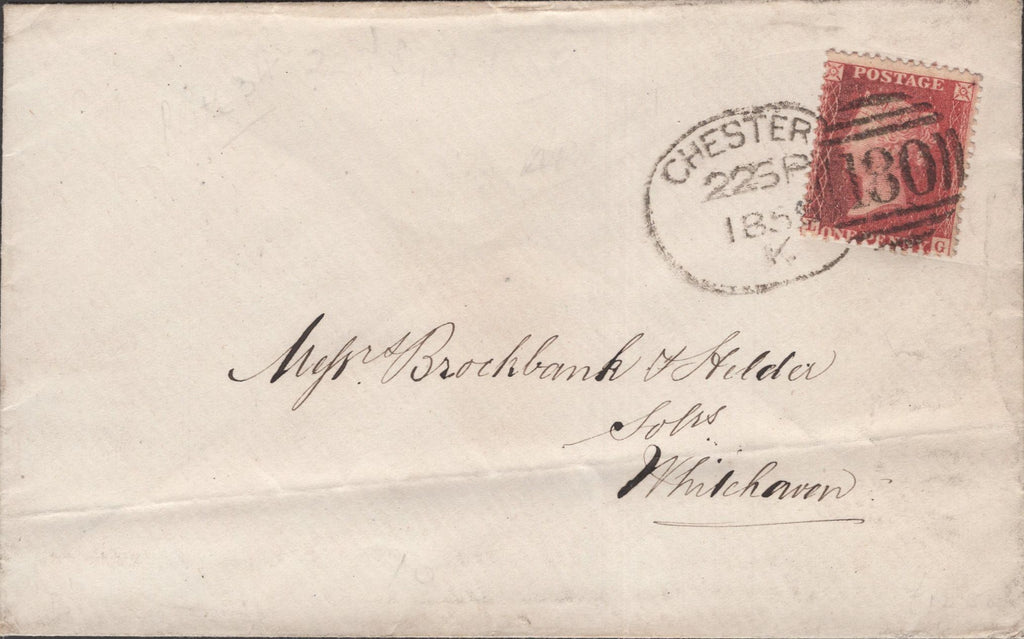 POSTAGE
CHESTER
22SP
185
K
180
ONE PENNY
G
Messrs Brockbank & Helder
Solrs
Whitehaven